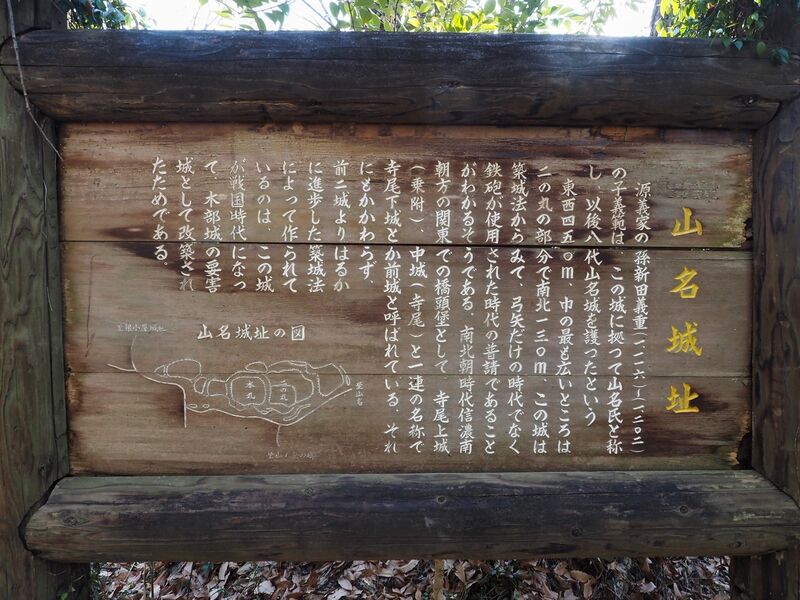 山名城址
源義家の孫新田義重(一一三六〜一二〇二)
の子義範は、この城に拠って山名氏と称
し、以後八代山名城を護ったという
東西四五〇m、中の最も広いところは
二の丸の部分で南北一三〇m、この城は
築城法からみて、弓矢だけの時代でなく
鉄砲が使用された時代の普請であること
がわかるそうである。南北朝時代信濃南
朝方の関東での橋頭堡として、寺尾上城
(乗附)、中城(寺尾)と一連の名称で
寺尾下城とか前城と呼ばれている、それ
にもかかわらず、
前二城よりはるか
に進歩した築城法
によって作られて
いるのは、この城
が戦国時代になっ
て、木部城の要害
城として改築され
たためである。
山名城址の図
至根小屋城址
本丸
二の丸
至山名